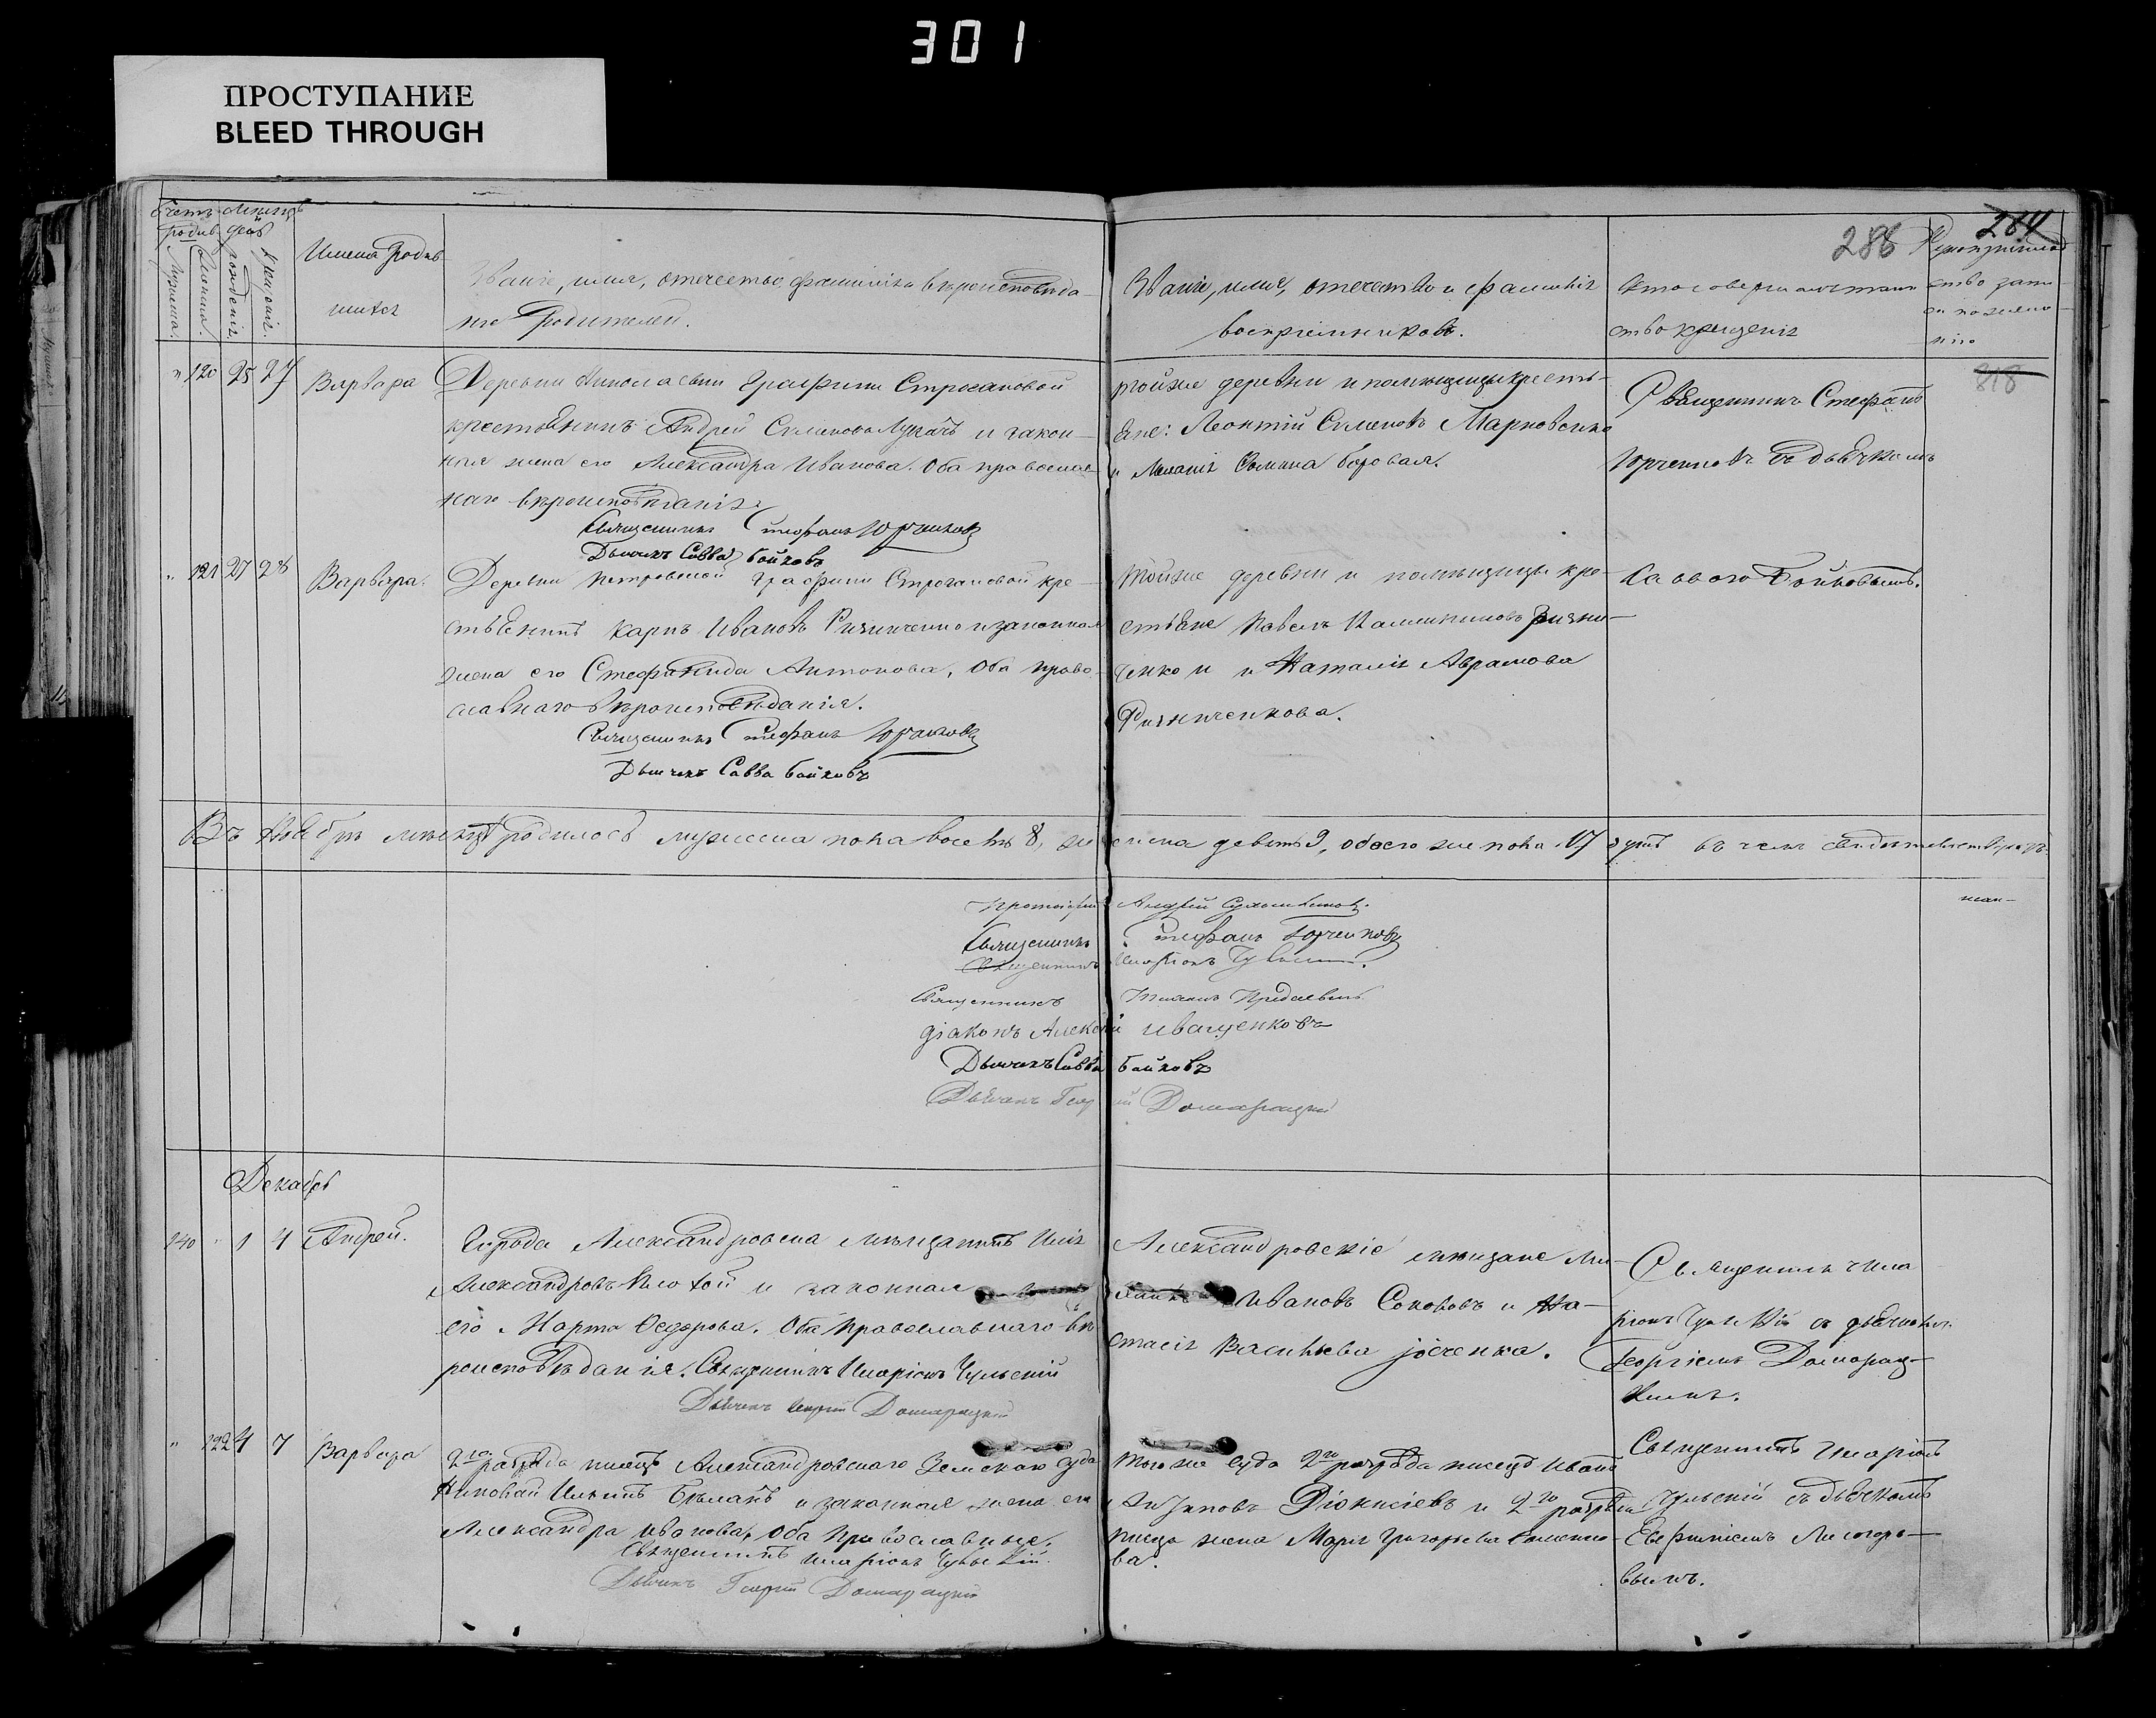 301
ПРОСТУПАНИЕ
BLEED THROUGH
286 284
Счетъ родив. Мѣсяцъ и день
Мужеска. Женска. рожденія. крещенія.
Имена родив-
шихся
Званіе, имя, отечество, фамилія и вѣроисповѣда-
ніе родителей.
Званіе, имя, отечество и фамилія
воспріемниковъ.
Кто совершалъ таин-
ство крещенія
Рукоприклад
ство
818
" 120 25 27 Варвара
Деревни Николаевки Графини Строгановой
крестьянинъ Андрей Сименовъ Лукачъ и закон-
ная жена его Александра Иванова. Оба православ-
наго вѣроисповѣданія.
Священникъ Стефанъ Юрченковъ
Дьячекъ Савва Бойковъ
тойже деревни и помѣщицы кресть-
яне: Леонтій Сименовъ Марковенко
и Меланія Сомина Боровая.
Священникъ Стефанъ
Юрченковъ съ дьячкомъ
" 121 27 28 Варвара.
Деревни Петровской Графини Строгановой кре-
стьянинъ Карпъ Ивановъ Ризниченко и законная
жена его Стефанида Антонова, Оба право-
славнаго вѣроисповѣданія.
Священникъ Стефанъ Юрченковъ
Дьячекъ Савва Бойковъ
Тойже деревни и помѣщицы кре-
стьяне Павелъ Ризни-
ченко и Наталія Абрамова
Ризниченкова.
Саввою Бойковымъ.
Въ Ноябрѣ мѣсяцѣ родилось мужеска пола восемь 8, женска девять 9, обоего же пола 17 душъ въ чемъ свидѣтельствуемъ
Протоіерей Андрей
Священникъ Стефанъ Юрченковъ
Священникъ Иларіонъ Чульскій
Священникъ
діаконъ Алексій Иващенковъ
Дьячекъ Савва Бойковъ
Дьячекъ Георгій Домарацкій
Декабрь
140 " 1 4 Андрей.
Города Александровска мѣщанинъ Илія
Александровъ и законная
его Марта Федорова. Оба православнаго вѣ-
роисповѣданія. Священникъ Иларіонъ Чульскій
Дьячекъ Георгій Домарацкій
Александровскіе мѣщане Ми-
хаилъ Ивановъ Соковъ и На-
стасія Васильева
Священникъ Ила
ріонъ Чульскій съ дьячкомъ
Георгіемъ Домарац-
кимъ.
" 122 4 7 Варвара
2го разряда писецъ Александровскаго Земскаго Суда
Николай Ильинъ Бѣланъ и законная жена его
Александра Иванова, Оба Православные.
Священникъ Иларіонъ Чульскій
Дьячекъ Георгій Домарацкій
Того же Суда 2го разряда писецъ Иванъ
Діонисіевъ и 2го разряда
писца жена Марія Григорьева Семено-
ва.
Священникъ Иларіонъ
Чульскій съ дьячкомъ
Евфиміемъ Лисогоро-
вымъ.